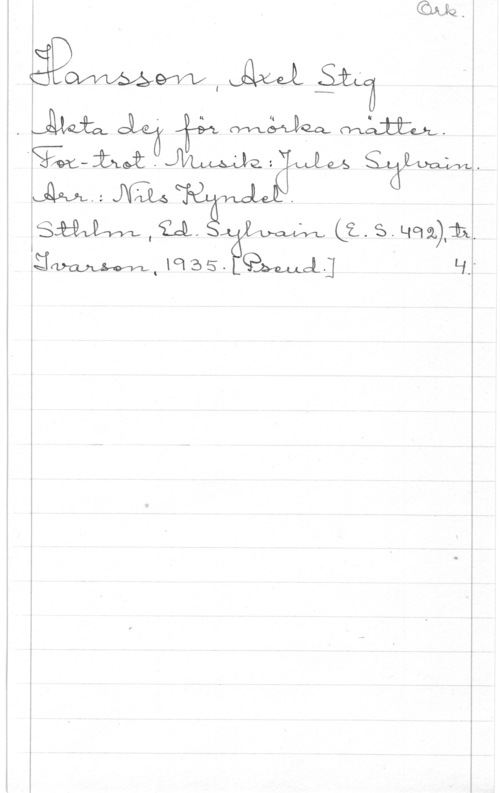 Ork.
Hansson, Axel Stig
Akta dej för mörka nätter.
Fox-trot. Musik: Jules Sylvain.
Arr.: Nils Kyndel.
Sthlm, Ed. Sylvain (E. S. 492), tr.
Ivarson, 1935. [Pseud.] 4.